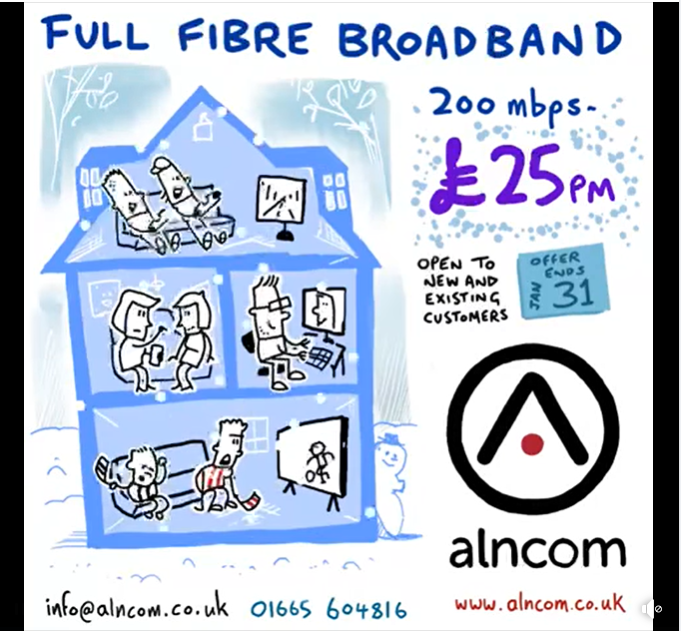 FULL FIBRE BROADBAND
200 mbps-
£25PM
OPEN TO
NEW AND
EXISTING
CUSTOMERS
OFFER
ENDS
JAN 31
alncom
info@alncom.co.uk 01665 604816 www.alncom.co.uk